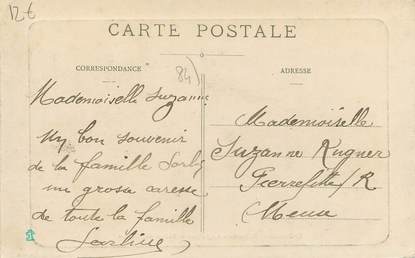 12€
CARTE POSTALE
CORRESPONDANCE
84)
ADRESSE
Mademoiselle Suzanne
Un bon souvenir
de la famille
un grosse caresse
de toute la famille
Mademoiselle
Suzanne Rugner
Pierrefitte/R
Meuse